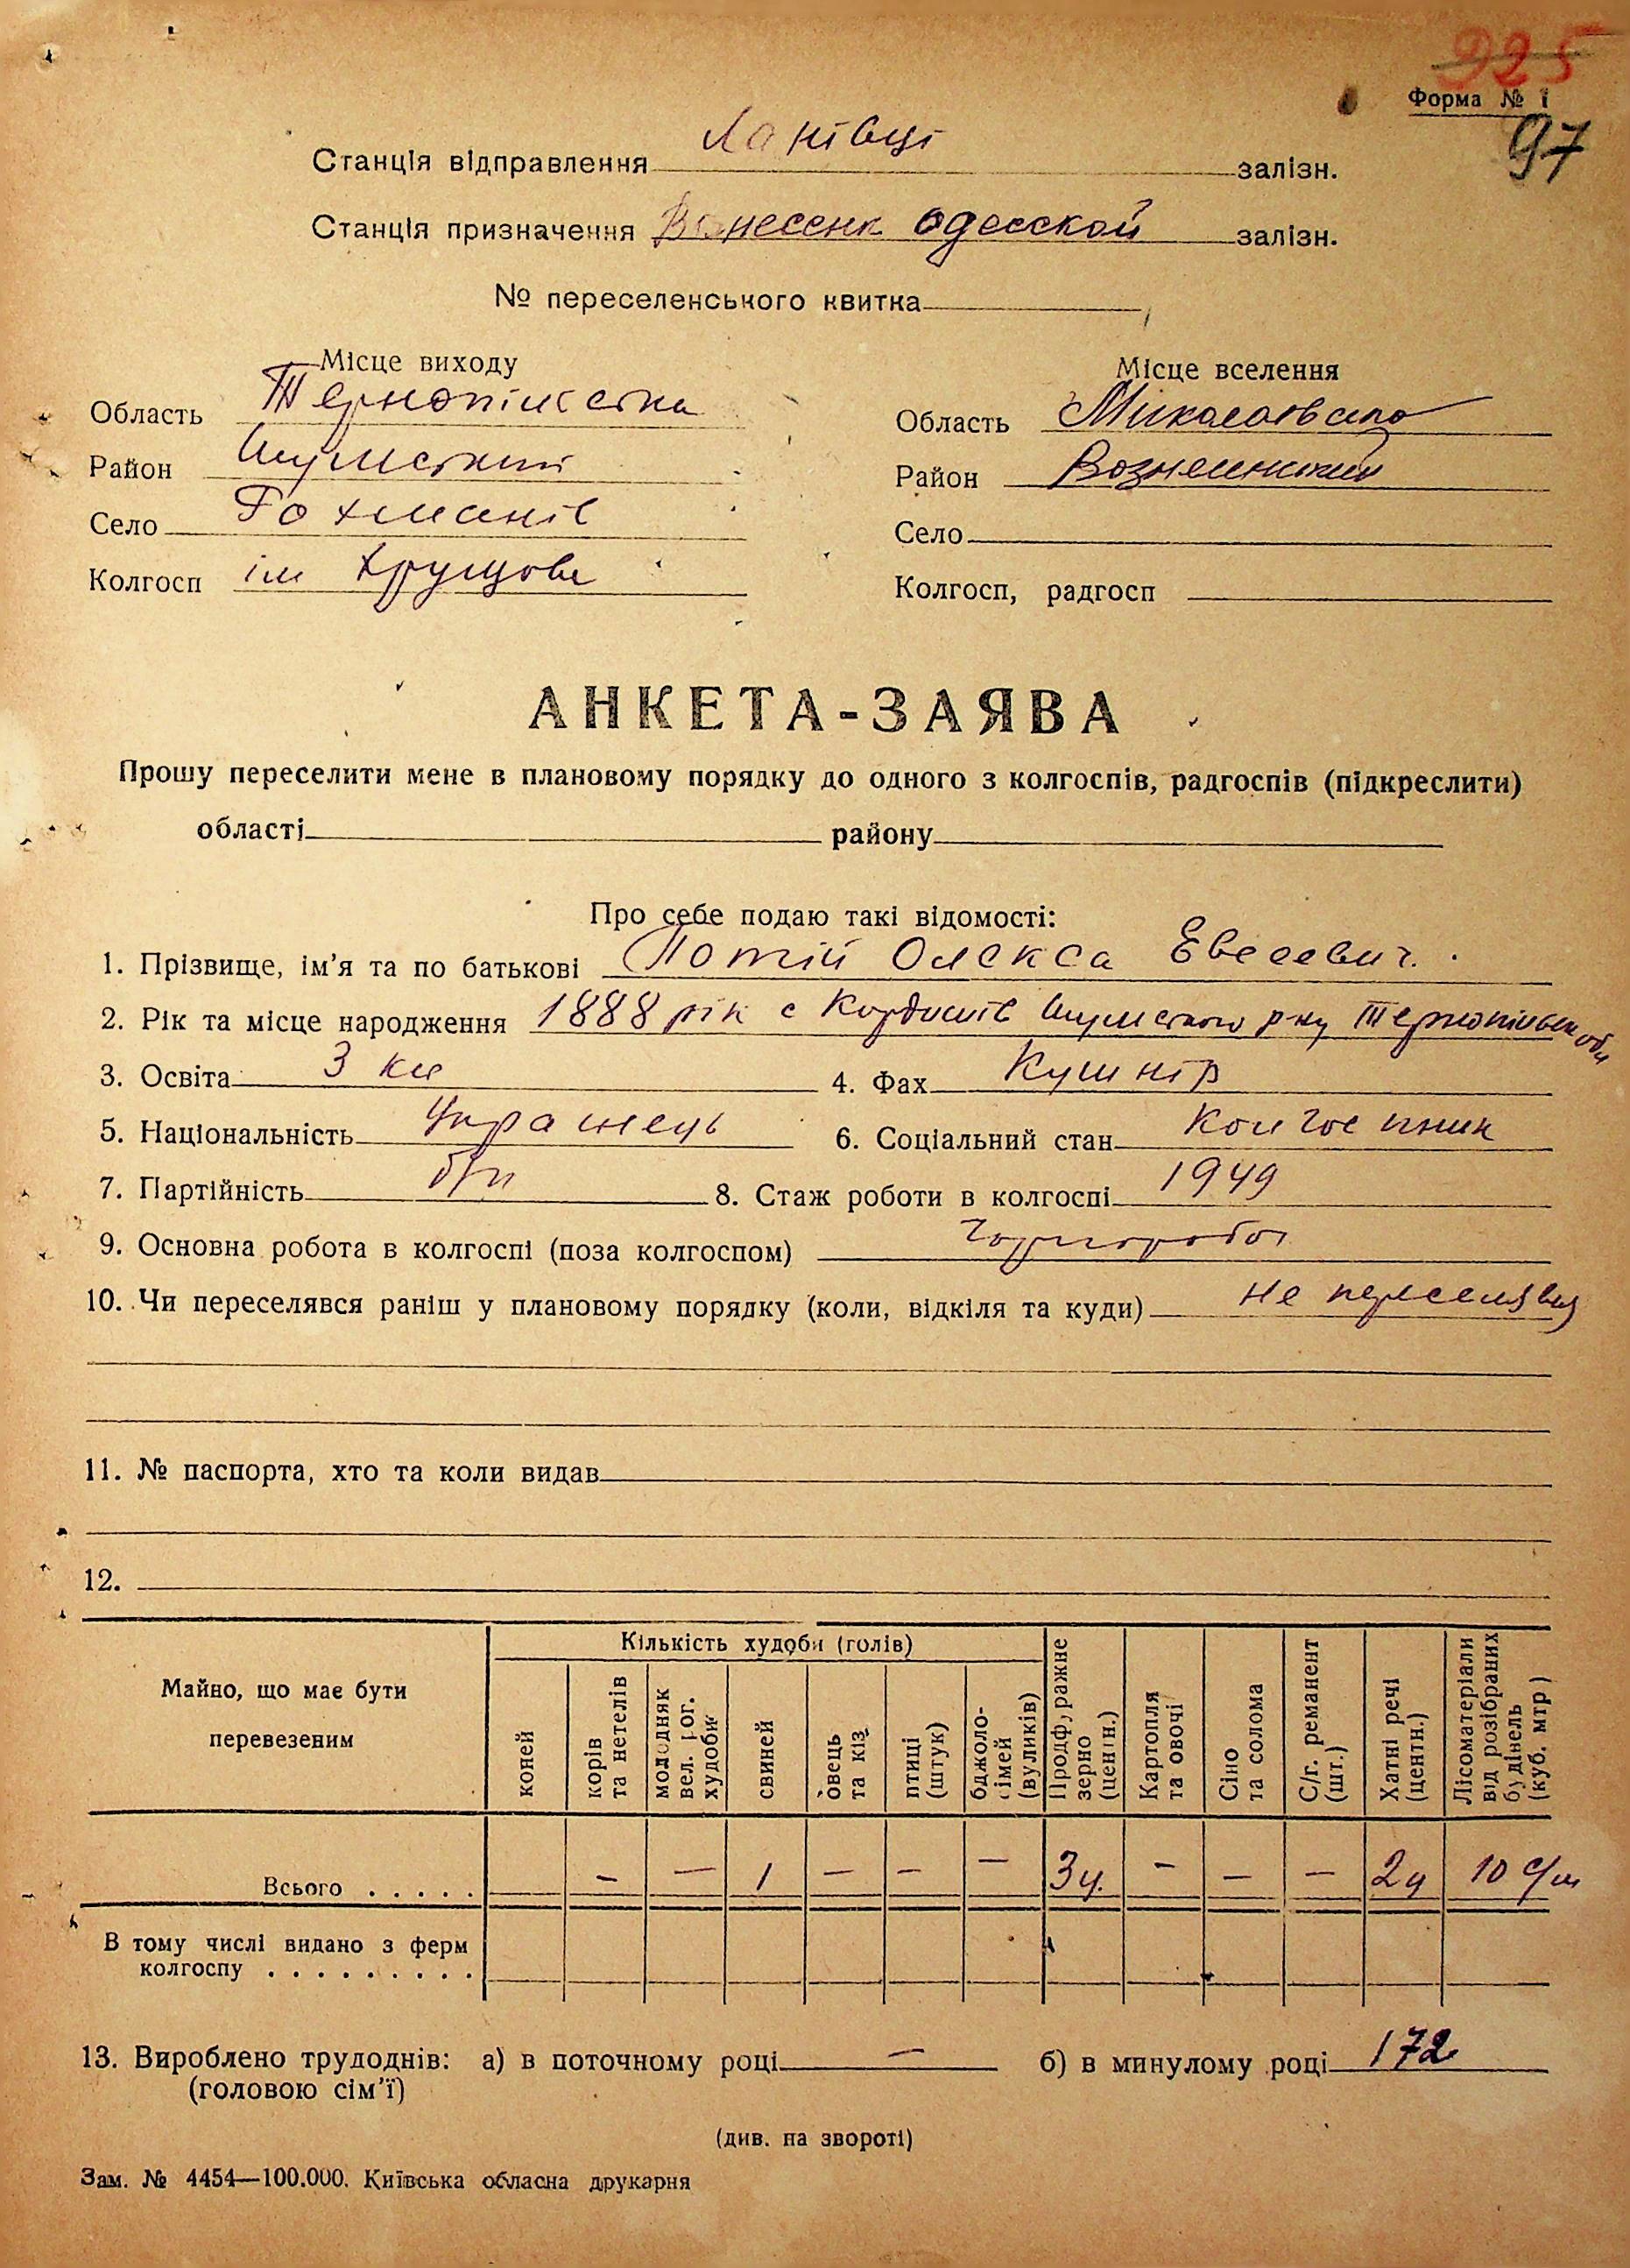 925
Форма № 1
97
Станція відправлення Ланівці залізн.
Станція призначення Вонесенк одесской залізн.
№ переселенського квитка
Місце виходу
Область Тернопільська
Район Шумський
Село Рохманів
Колгосп ім Хрущова
Місце вселення
Область Миколаївська
Район Вознесенський
Село
Колгосп, радгосп
АНКЕТА-ЗАЯВА
Прошу переселити мене в плановому порядку до одного з колгоспів, радгоспів (підкреслити)
області району
Про себе подаю такі відомості:
1. Прізвище, ім'я та по батькові Потій Олекса Евсеевич.
2. Рік та місце народження 1888 рік с Кордишів Шумського р-ну Тернопільськ обл
3. Освіта 3 кл 4. Фах Кушнір
5. Національність Українець 6. Соціальний стан Колгоспник
7. Партійність б/п 8. Стаж роботи в колгоспі 1949
9. Основна робота в колгоспі (поза колгоспом)
10. Чи переселявся раніш у плановому порядку (коли, відкіля та куди) не переселявся
11. № паспорта, хто та коли видав
12.
Майно, що має бути перевезеним
Кількість худоби (голів)
коней
корів та нетелів
молодняк вел. рог. худоби
свиней
овець та кіз
птиці (штук)
бджоло-сімей (вуликів)
Продфуражне зерно (центн.)
Картопля та овочі
Сіно та солома
С/г. реманент (шт.)
Хатні речі (центн.)
Лісоматеріали від розібраних будінель (куб. мтр)
Всього . . . . . — — 1 — — — 3ц. — — — 2ц 10 с/м
В тому числі видано з ферм
колгоспу . . . . . . . . .
13. Вироблено трудоднів: а) в поточному році — б) в минулому році 172
(головою сім'ї)
(див. на звороті)
Зам. № 4454—100.000. Київська обласна друкарня